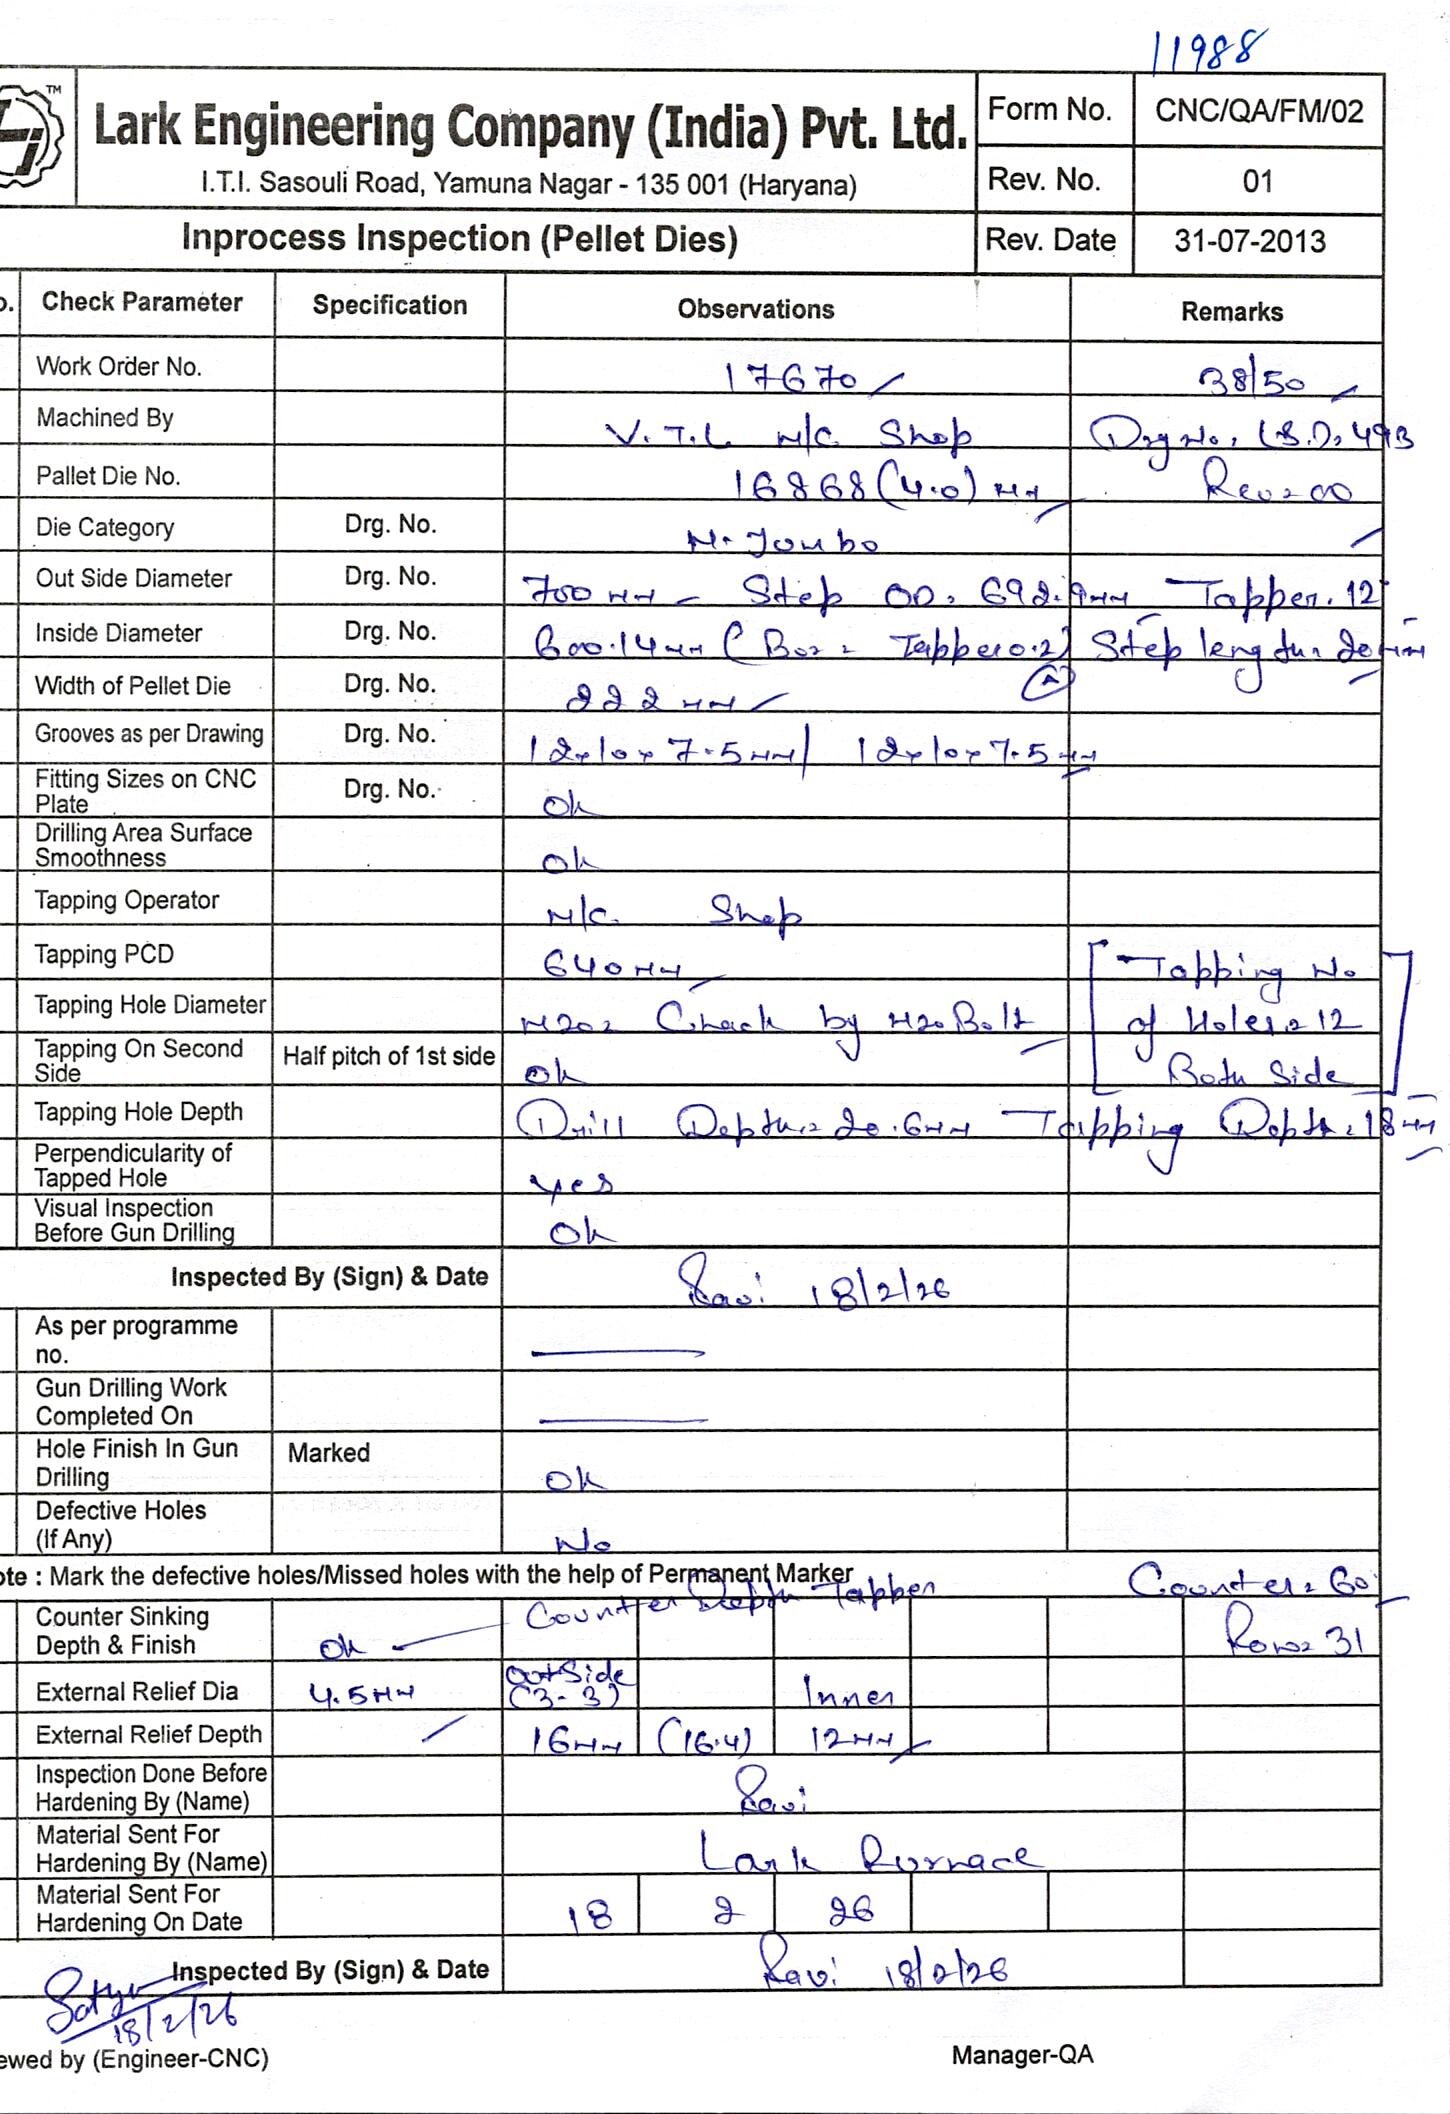 11988
TM
Lark Engineering Company (India) Pvt. Ltd.
I.T.I. Sasouli Road, Yamuna Nagar - 135 001 (Haryana)
Form No. CNC/QA/FM/02
Rev. No. 01
Inprocess Inspection (Pellet Dies)
Rev. Date 31-07-2013
o. Check Parameter Specification Observations Remarks
Work Order No. 17670 38/50
Machined By V.T.L M/C Shop Drg No.
Pallet Die No. 16868 (4.0) MM Rev = 00
Die Category Drg. No. M. Jumbo
Out Side Diameter Drg. No. 700 MM - Step OD. 692.9MM Tapper. 12°
Inside Diameter Drg. No. 600.14MM (Bor = Tapper 0.2) Step length = 20MM
Width of Pellet Die Drg. No. 222 MM A
Grooves as per Drawing Drg. No. 12x10x7.5MM/ 12x10x7.5MM
Fitting Sizes on CNC Plate Drg. No. Ok
Drilling Area Surface Smoothness Ok
Tapping Operator M/C Shop
Tapping PCD 640MM Tapping No
Tapping Hole Diameter M20= Chack by M20 Bolt of Holes = 12
Tapping On Second Side Half pitch of 1st side Ok Both Side
Tapping Hole Depth Drill Depth = 20.6MM Tapping Depth = 18MM
Perpendicularity of Tapped Hole yes
Visual Inspection Before Gun Drilling Ok
Inspected By (Sign) & Date Ravi 18/2/26
As per programme no.
Gun Drilling Work Completed On
Hole Finish In Gun Drilling Marked Ok
Defective Holes (If Any) No
ote : Mark the defective holes/Missed holes with the help of Permanent Marker
Counter Depth Tapper Counter = 60°
Counter Sinking Depth & Finish Ok Row = 31
External Relief Dia 4.5MM OutSide (3-3) Inner
External Relief Depth 16MM (16.4) 12MM
Inspection Done Before Hardening By (Name) Ravi
Material Sent For Hardening By (Name) Lark Furnace
Material Sent For Hardening On Date 18 2 26
Inspected By (Sign) & Date Ravi 18/2/26
Satyu
18/2/26
ewed by (Engineer-CNC) Manager-QA